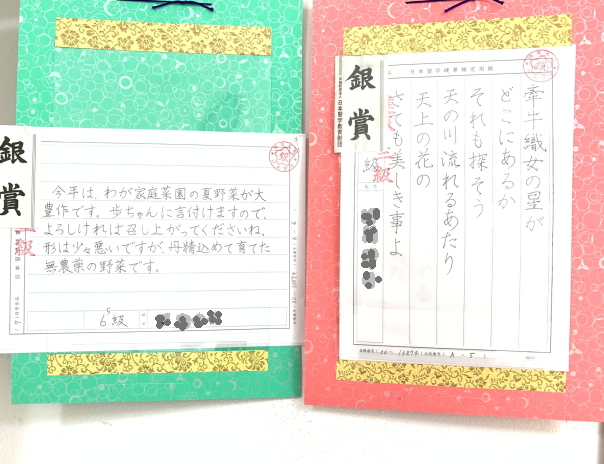 銀賞
今年は、わが家庭菜園の夏野菜が大
豊作です。歩ちゃんに言付けますので、
よろしければ召し上がってくださいね。
形は少々悪いですが、丹精込めて育てた
無農薬の野菜です。
6級
5
氏名
銀賞
日本習字教育財団
日本習字硬筆検定用紙
牽牛織女の星が
どこにあるか
それも探そう
天の川流れるあたり
天上の花の
さても美しき事よ
級